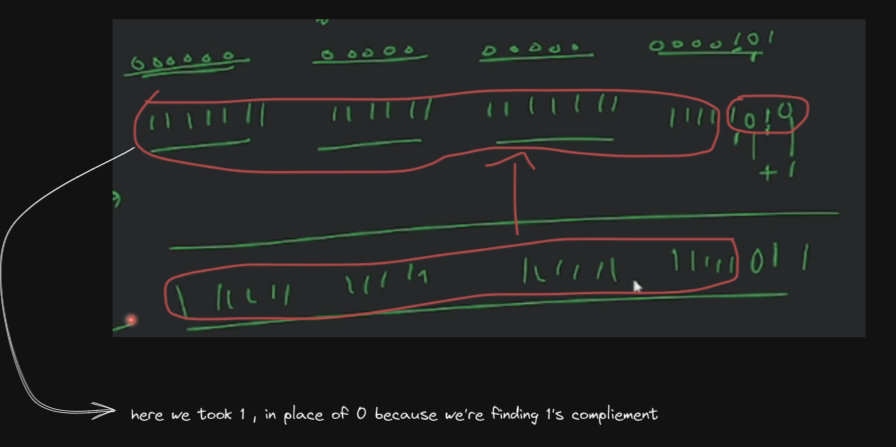 000000 00000 00000 0000101
1111111 111111 1111111 1111 1010
+1
1 11111 11111 111111 111111 011 1
here we took 1 , in place of 0 because we're finding 1's compliement